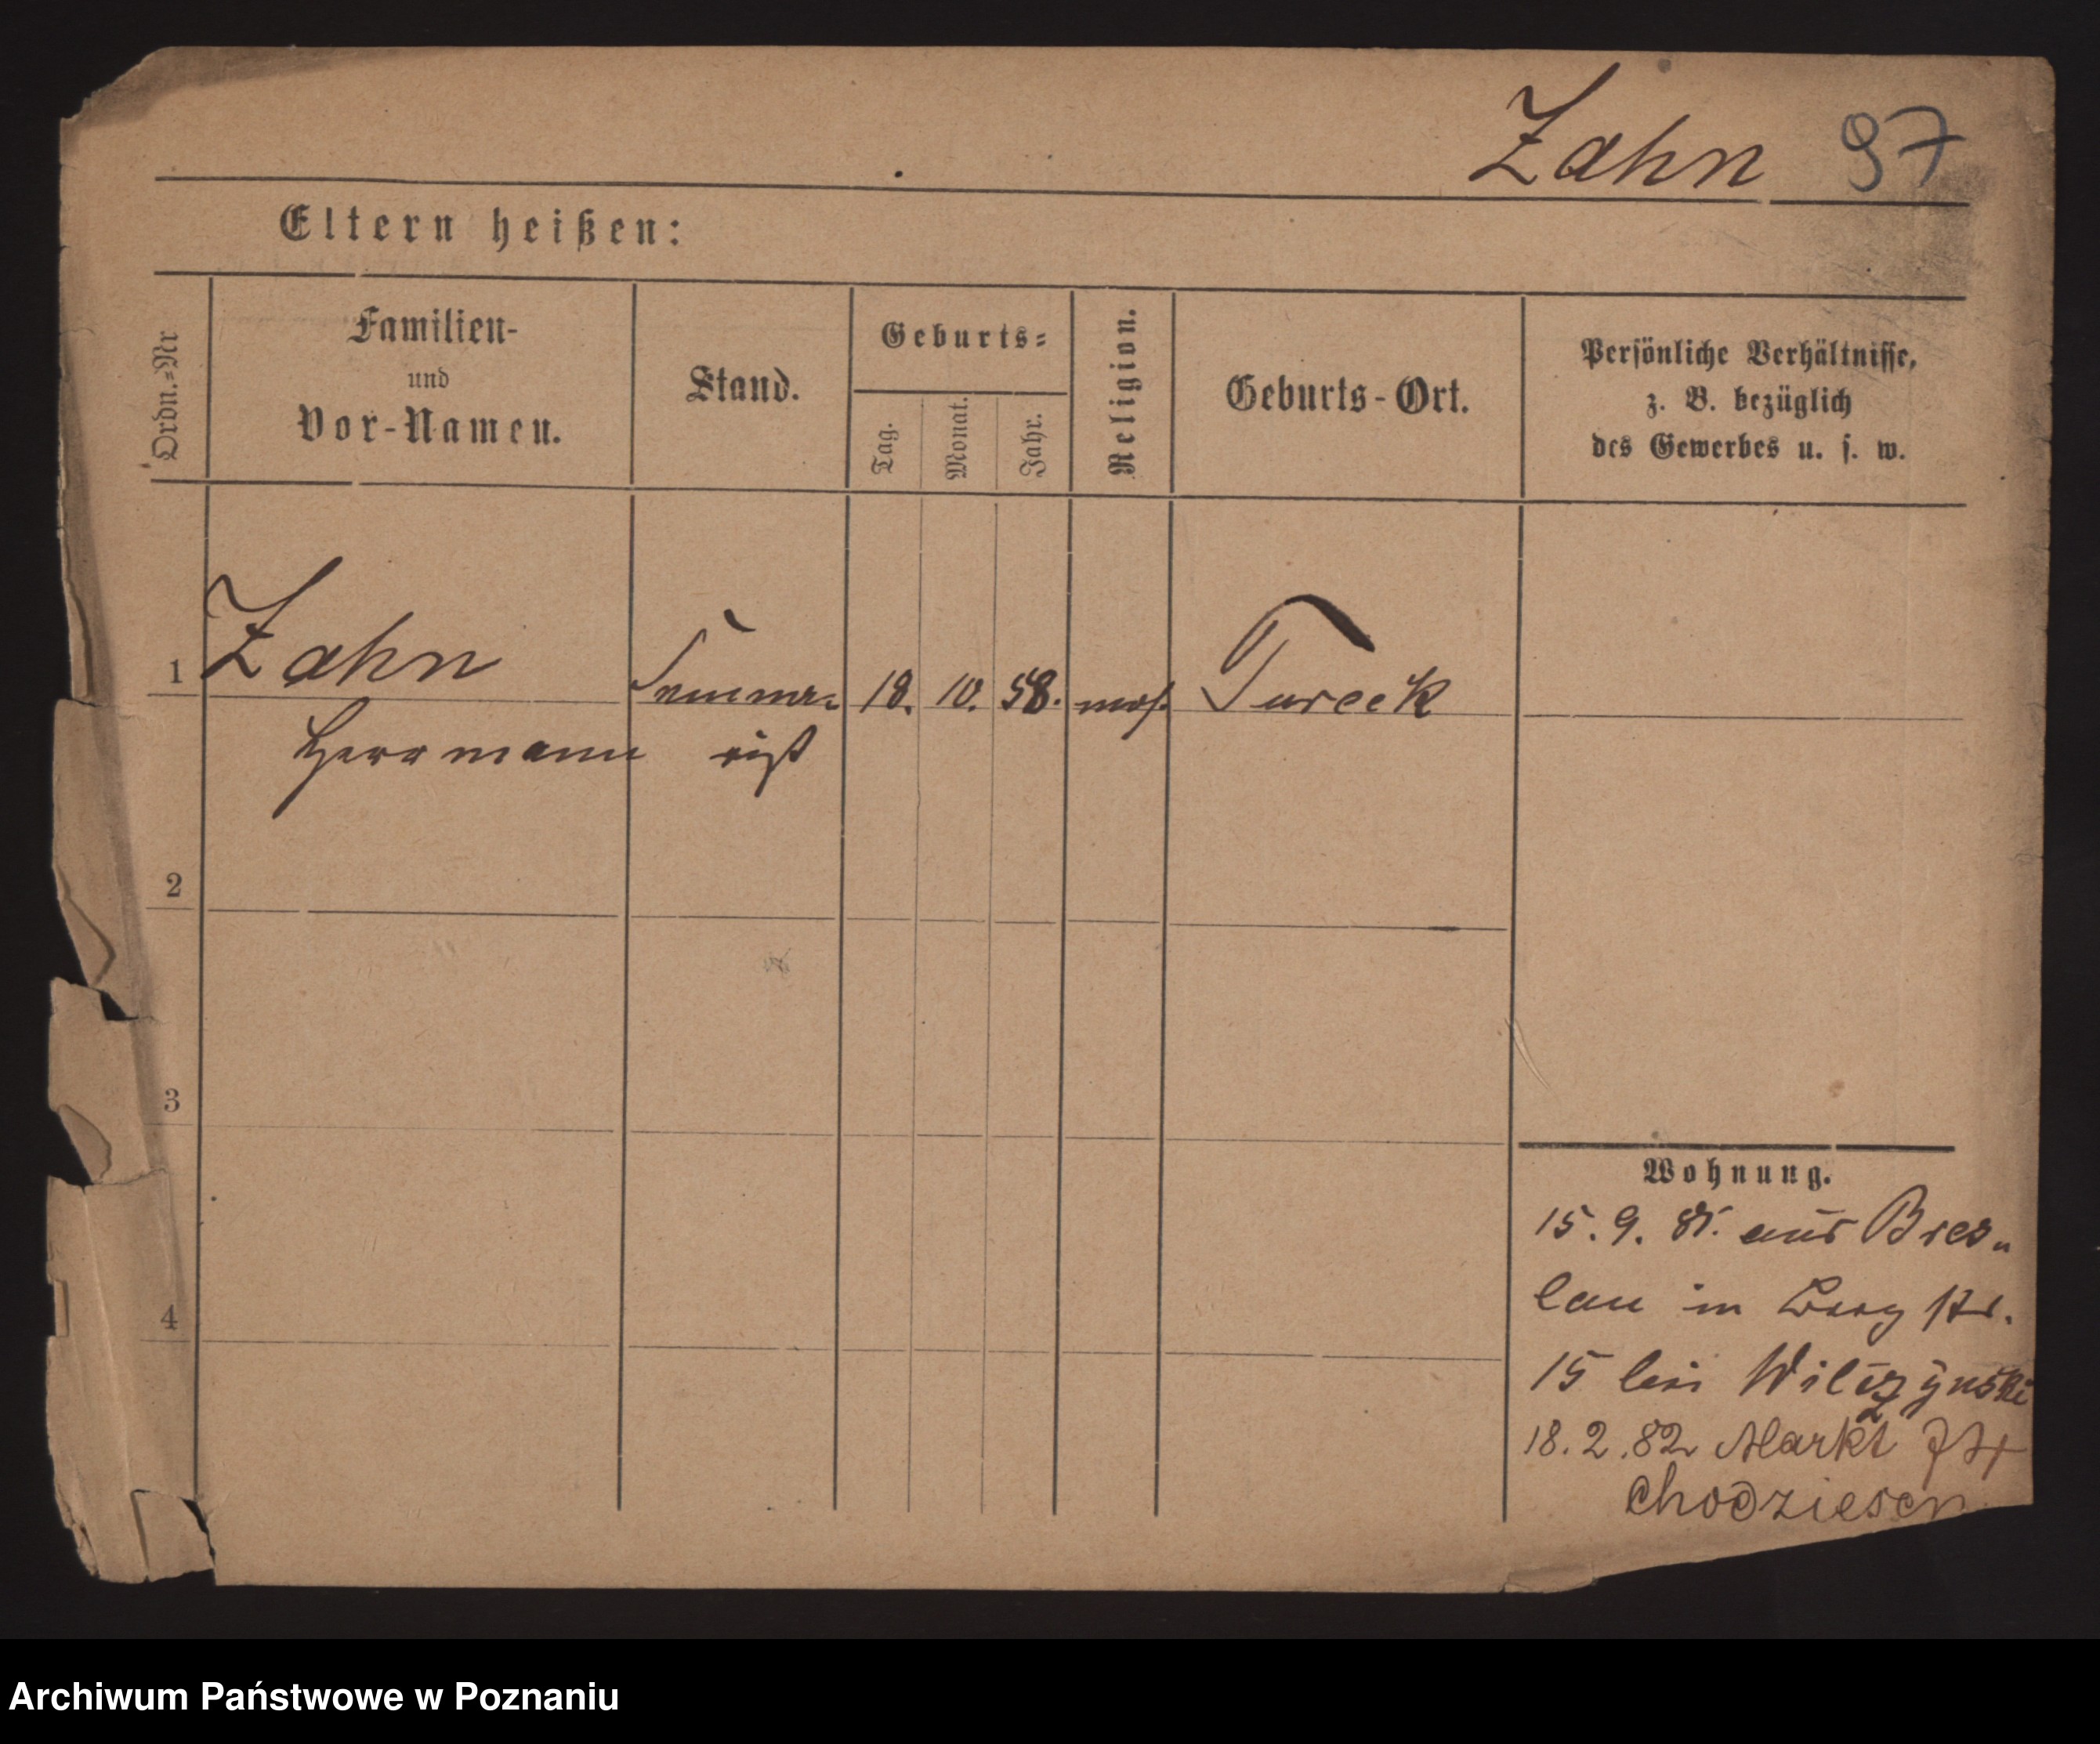 Zahn 97
Eltern heißen:
Ordn.=Nr
Familien-
und
Vor-Namen.
Stand.
Geburts=
Tag.
Monat.
Jahr.
Religion.
Geburts-Ort.
Persönliche Verhältnisse,
z. B. bezüglich
des Gewerbes u. s. w.
1 Zahn 18. 10. 58. mos. Tureck
Herrmann
2
3
4
Wohnung.
15. 9. 81. aus Bres„
lau in Berg str.
15 bei Wilczynski
18.2.82 Markt
Chodziesen
Archiwum Państwowe w Poznaniu